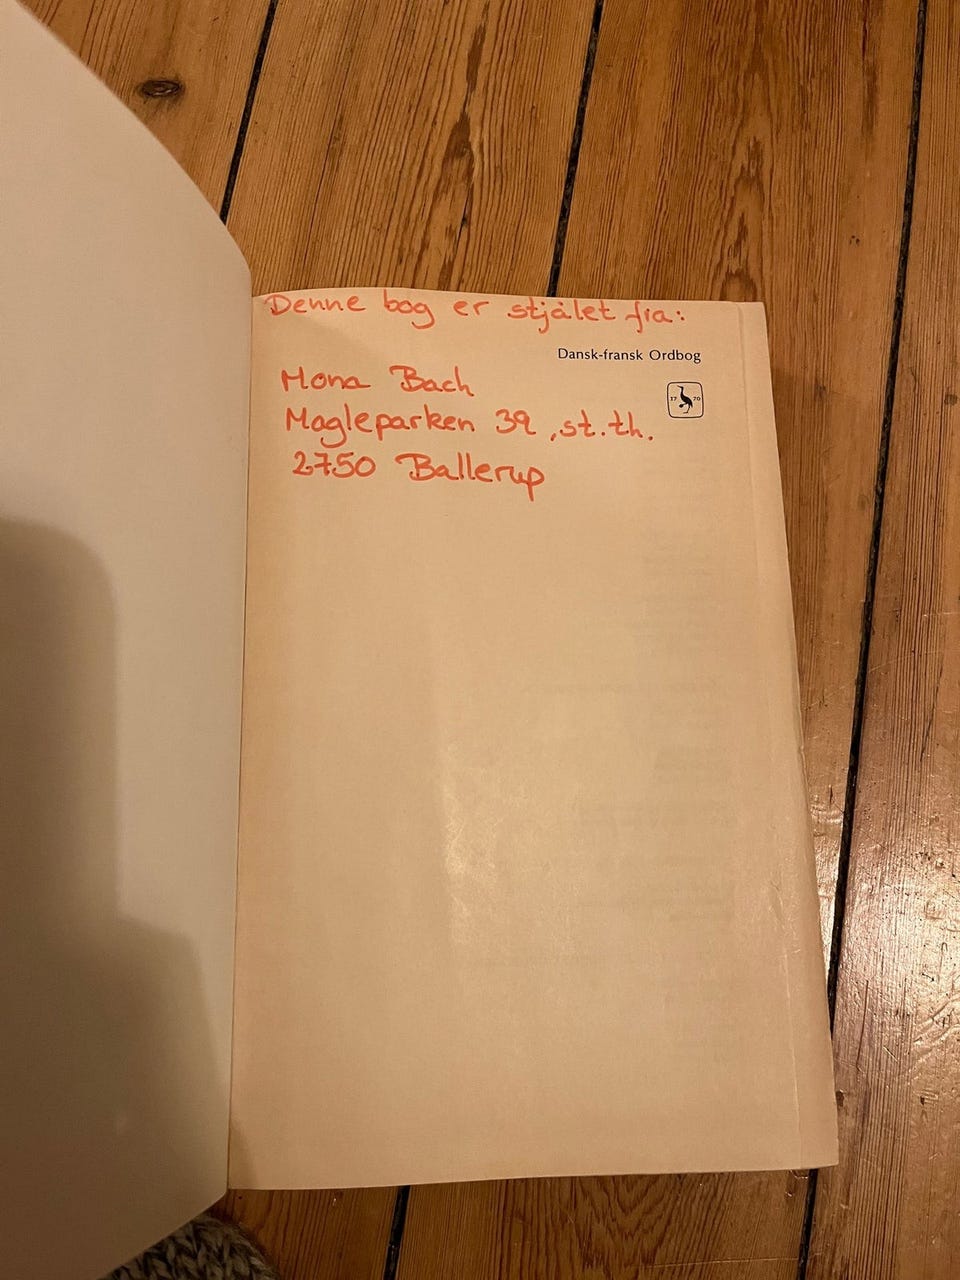 Denne bog er stjålet fra:
Dansk-fransk Ordbog
17 70
Mona Bach
Magleparken 39, st.th.
2750 Ballerup